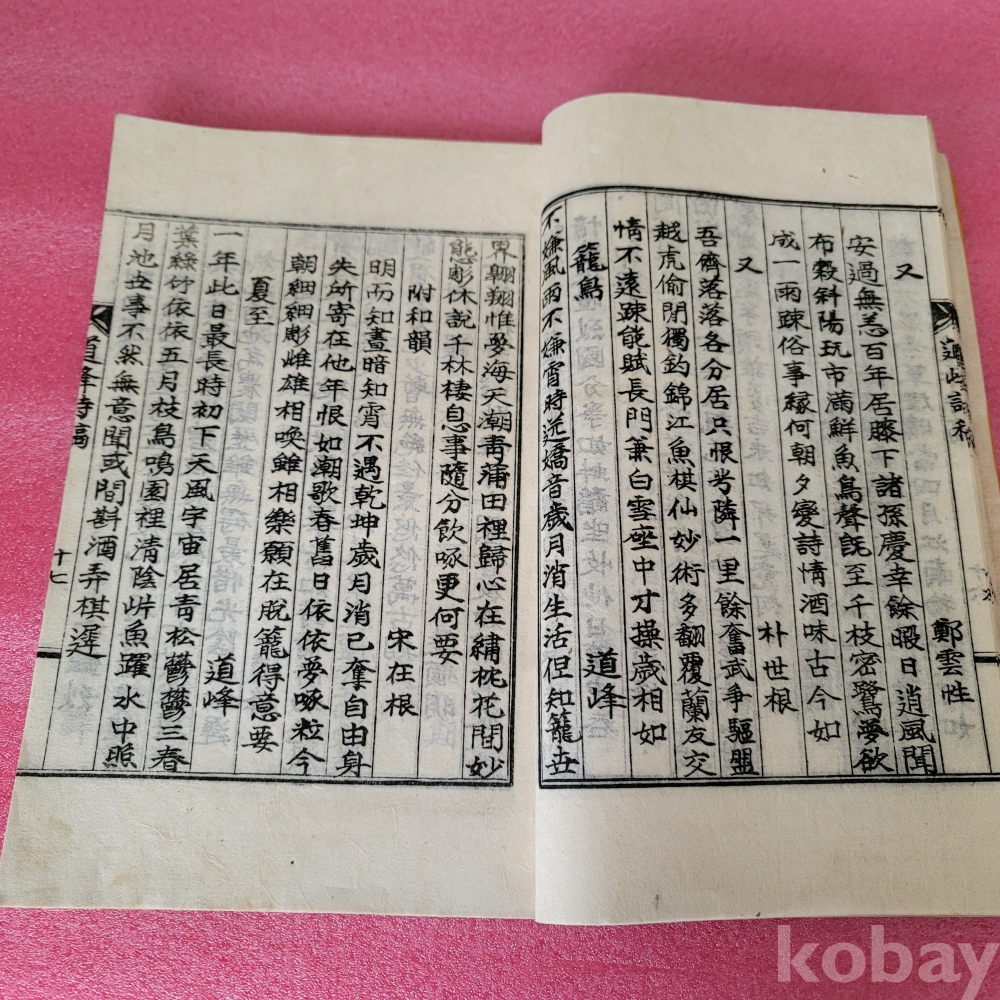 又
鄭雲性
安過無恙百年居膝下諸孫慶幸餘暇日逍風聞
布穀斜陽玩市滿鮮魚鳥聲旣至千枝密鷺夢欲
成一雨疎俗事緣何朝夕變詩情酒味古今如
又
朴世根
吾儕落落各分居只恨芳隣一里餘奮武爭驅盟
越虎偷閒獨釣錦江魚棋仙妙術多翻覆蘭友交
情不遠疎能賦長門兼白雲座中才操歲相如
籠鳥
道峰
不嫌風雨不嫌宵時送嬌音歲月消生活但知籠世
界翱翔惟夢海天潮靑蒲田裡歸心在繡枕花間妙
態彫休說千林棲息事隨分飮啄更何要
附和韻
宋在根
明而知晝暗知宵不遇乾坤歲月消已奪自由身
失所寄在他年恨如潮歌春舊日依依夢啄粒今
朝細細彫雌雄相喚雖相樂願在脫籠得意要
夏至
道峰
一年此日最長時初下天風宇宙居靑松鬱鬱三春
葉綠竹依依五月枝鳥鳴園裡淸陰片魚躍水中照
月池世事不然無意聞或間斟酒弄棋遲
道峰詩稿
十七
kobay